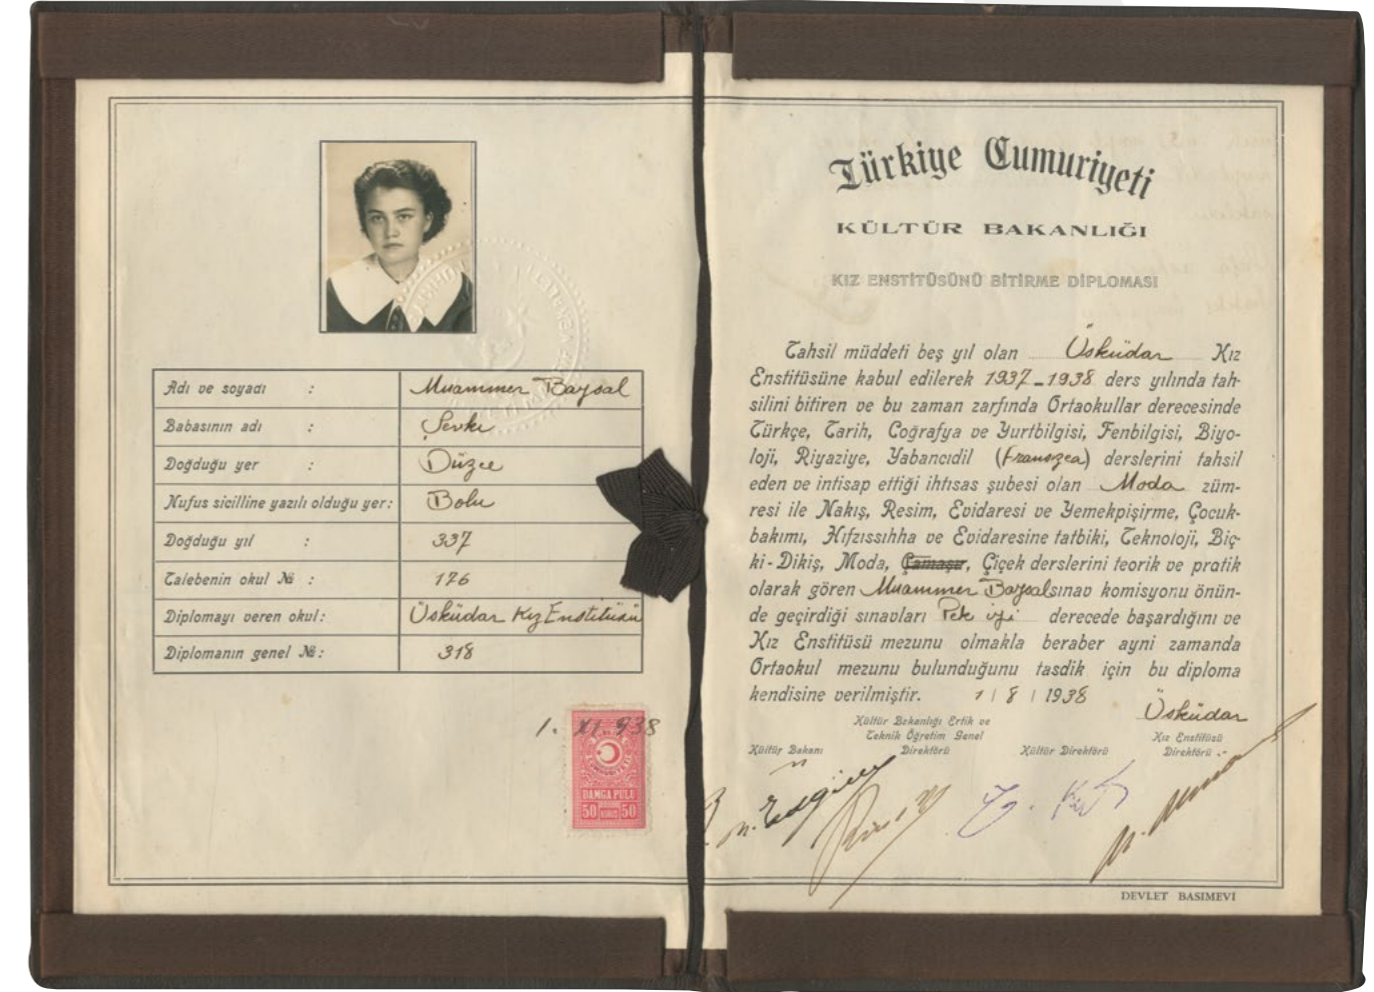 Adı ve soyadı : Muammer Baysal
Babasının adı : Şevki
Doğduğu yer : Düzce
Nufus sicilline yazılı olduğu yer: Bolu
Doğduğu yıl : 337
Talebenin okul № : 176
Diplomayı veren okul: Üsküdar Kız Enstitüsü
Diplomanın genel №: 318
1. XI 938
DAMGA PULU
50 KURUŞ 50
Türkiye Cumuriyeti
KÜLTÜR BAKANLIĞI
KIZ ENSTİTÜSÜNÜ BİTİRME DİPLOMASI
Tahsil müddeti beş yıl olan Üsküdar Kız
Enstitüsüne kabul edilerek 1937-1938 ders yılında tah-
silini bitiren ve bu zaman zarfında Ortaokullar derecesinde
Türkçe, Tarih, Coğrafya ve Yurtbilgisi, Fenbilgisi, Biyo-
loji, Riyaziye, Yabancıdil (Fransızca) derslerini tahsil
eden ve intisap ettiği ihtisas şubesi olan Moda züm-
resi ile Nakış, Resim, Evidaresi ve Yemekpişirme, Çocuk-
bakımı, Hıfzıssıhha ve Evidaresine tatbiki, Teknoloji, Biç-
ki-Dikiş, Moda, Çamaşır, Çiçek derslerini teorik ve pratik
olarak gören Muammer Baysal sınav komisyonu önün-
de geçirdiği sınavları Pek iyi derecede başardığını ve
Kız Enstitüsü mezunu olmakla beraber ayni zamanda
Ortaokul mezunu bulunduğunu tasdik için bu diploma
kendisine verilmiştir. 1 / 8 / 1938
Üsküdar
Kültür Bakanı
Kültür Bakanlığı Ertik ve
Teknik Öğretim Genel
Direktörü
Kültür Direktörü
Kız Enstitüsü
Direktörü .-
DEVLET BASIMEVİ